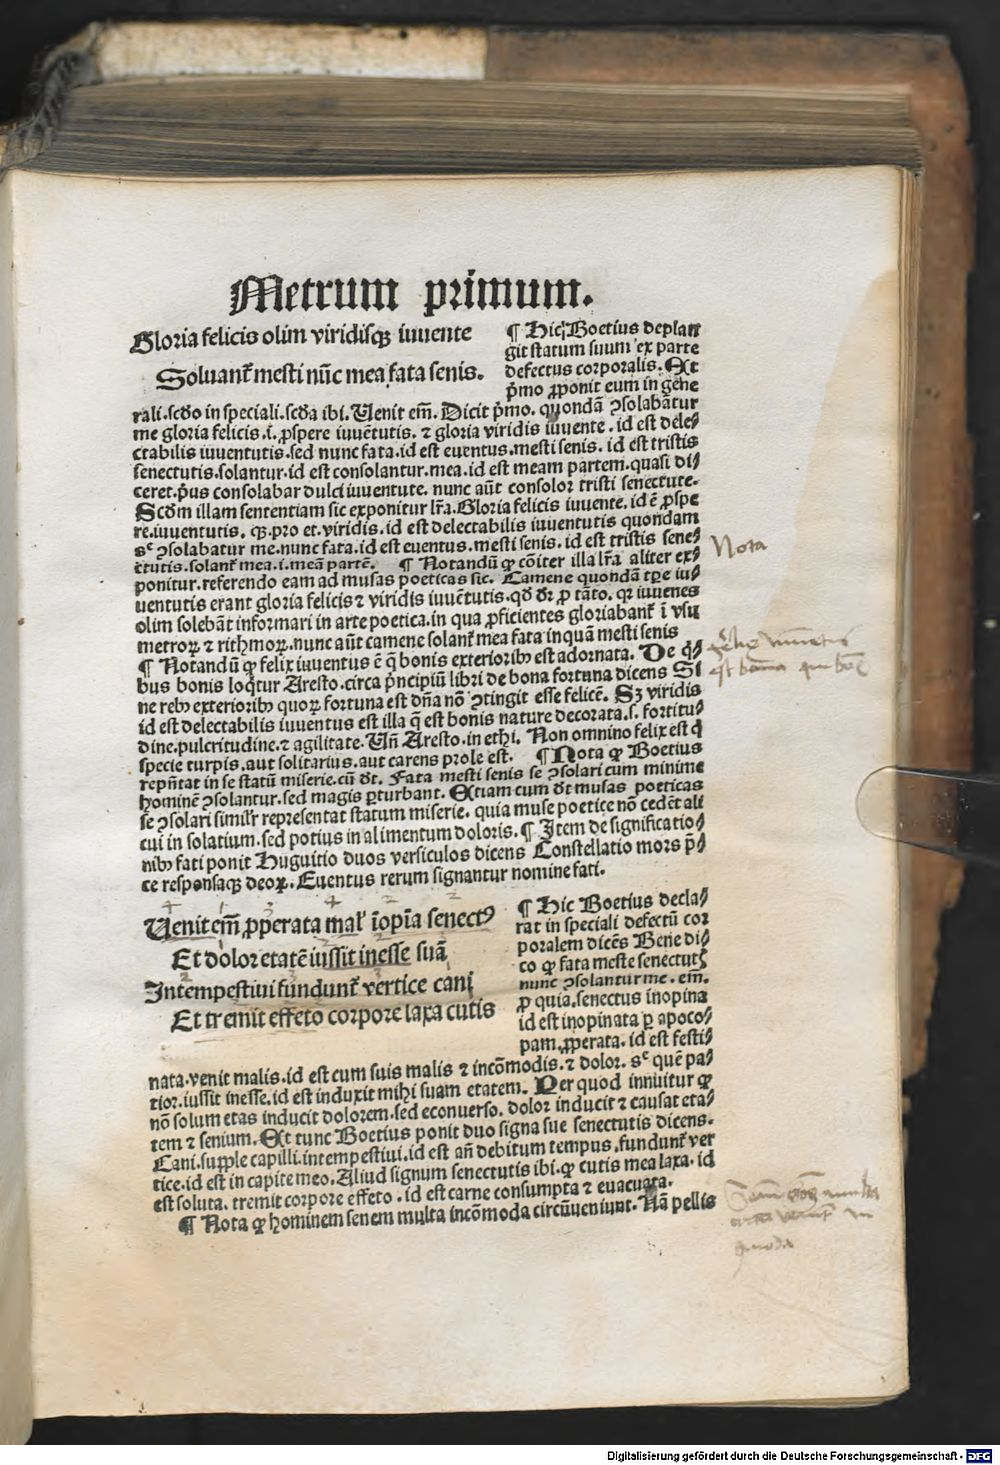 Metrum primum.
Gloria felicis olim viridisqꝫ iuuente
Soluant̃ mesti nũc mea fata senis.
¶ Hic Boetius deplan
git statum suum ex parte
defectus corporalis. Et
p̃mo ꝓponit eum in gene
rali. scđo in speciali. scđa ibi. Uenit em̃. Dicit p̃mo. quondã ꝯsolabãtur
me gloria felicis .i. ꝓspere iuuẽtutis. ⁊ gloria viridis iuuente. id est dele⸗
ctabilis iuuentutis. sed nunc fata. id est euentus. mesti senis. id est tristis
senectutis. solantur. id est consolantur. mea. id est meam partem. quasi di⸗
ceret. p̃us consolabar dulci iuuentute. nunc aũt consolor tristi senectute.
Scđm illam sententiam sic exponitur lr̃a. Gloria felicis iuuente. id ẽ ꝓspe
re. iuuentutis. qꝫ. pro et. viridis. id est delectabilis iuuentutis quondam
sᶜ ꝯsolabatur me. nunc fata. id est euentus. mesti senis. id est tristis sene⸗
ctutis. solant̃ mea .i. meã partẽ. ¶ Notandũ ꝙ cõiter illa lr̃a aliter ex⸗
ponitur. referendo eam ad musas poeticas sic. Camene quondã tp̃e iu⸗
uentutis erant gloria felicis ⁊ viridis iuuẽtutis. qđ dr̃ ꝓ tãto. qꝛ iuuenes
olim solebãt informari in arte poetica. in qua ꝓficientes gloriabant̃ ĩ vsu
metroꝝ ⁊ rithmoꝝ. nunc aũt camene solant̃ mea fata inquam mesti senis
¶ Notandũ ꝙ felix iuuentus ẽ q̃ bonis exterioribꝫ est adornata. De q̃⸗
bus bonis loq̃tur Aresto. circa p̃ncipiũ libri de bona fortuna dicens Si
ne rebꝫ exterioribꝫ quoꝝ fortuna est dña nõ ꝯtingit esse felicẽ. Sꝫ viridis
id est delectabilis iuuentus est illa q̃ est bonis nature decorata. s. fortitu⸗
dine. pulcritudine. ⁊ agilitate. Uñ Aresto. in ethi. Non omnino felix est q̃
specie turpis. aut solitarius. aut carens prole est. ¶ Nota ꝙ Boetius
repñtat in se statũ miserie. cũ đt. Fata mesti senis se ꝯsolari cum minime
hominẽ ꝯsolantur. sed magis ꝑturbant. Etiam cum đt musas poeticas
se ꝯsolari simil̃r representat statum miserie. quia muse poetice nõ cedẽt ali
cui in solatium. sed potius in alimentum doloris. ¶ Item de significatio⸗
nibꝫ fati ponit Huguitio duos versiculos dicens Constellatio mors p̃⸗
ce responsaqꝫ deoꝝ. Euentus rerum signantur nomine fati.
Uenit em̃ ꝓperata mal̃ ĩopĩa senectꝰ
Et dolor etatẽ iussit inesse suã
Intempestiui fundunt̃ vertice cani
Et tremit effeto corpore laxa cutis
¶ Hic Boetius decla⸗
rat in speciali defectũ cor
poralem dicẽs Bene di⸗
co ꝙ fata meste senectutꝭ
nunc ꝯsolantur me. em̃.
ꝓ quia. senectus inopina
id est inopinata ꝑ apoco⸗
pam. ꝓperata. id est festi⸗
nata. venit malis. id est cum suis malis ⁊ incõmodis. ⁊ dolor. sᶜ quẽ pa⸗
tior. iussit inesse. id est induxit mihi suam etatem. Per quod innuitur ꝙ
nõ solum etas inducit dolorem. sed econuerso. dolor inducit ⁊ causat eta⸗
tem ⁊ senium. Et tunc Boetius ponit duo signa sue senectutis dicens.
Cani. supple capilli. intempestiui. id est añ debitum tempus. fundunt̃ ver
tice. id est in capite meo. Aliud signum senectutis ibi. ꝙ cutis mea laxa. id
est soluta. tremit corpore effeto. id est carne consumpta ⁊ euacuata.
¶ Nota ꝙ hominem senem multa incõmoda circũueniunt. Nã pellis
Nota
Digitalisierung gefördert durch die Deutsche Forschungsgemeinschaft - DFG